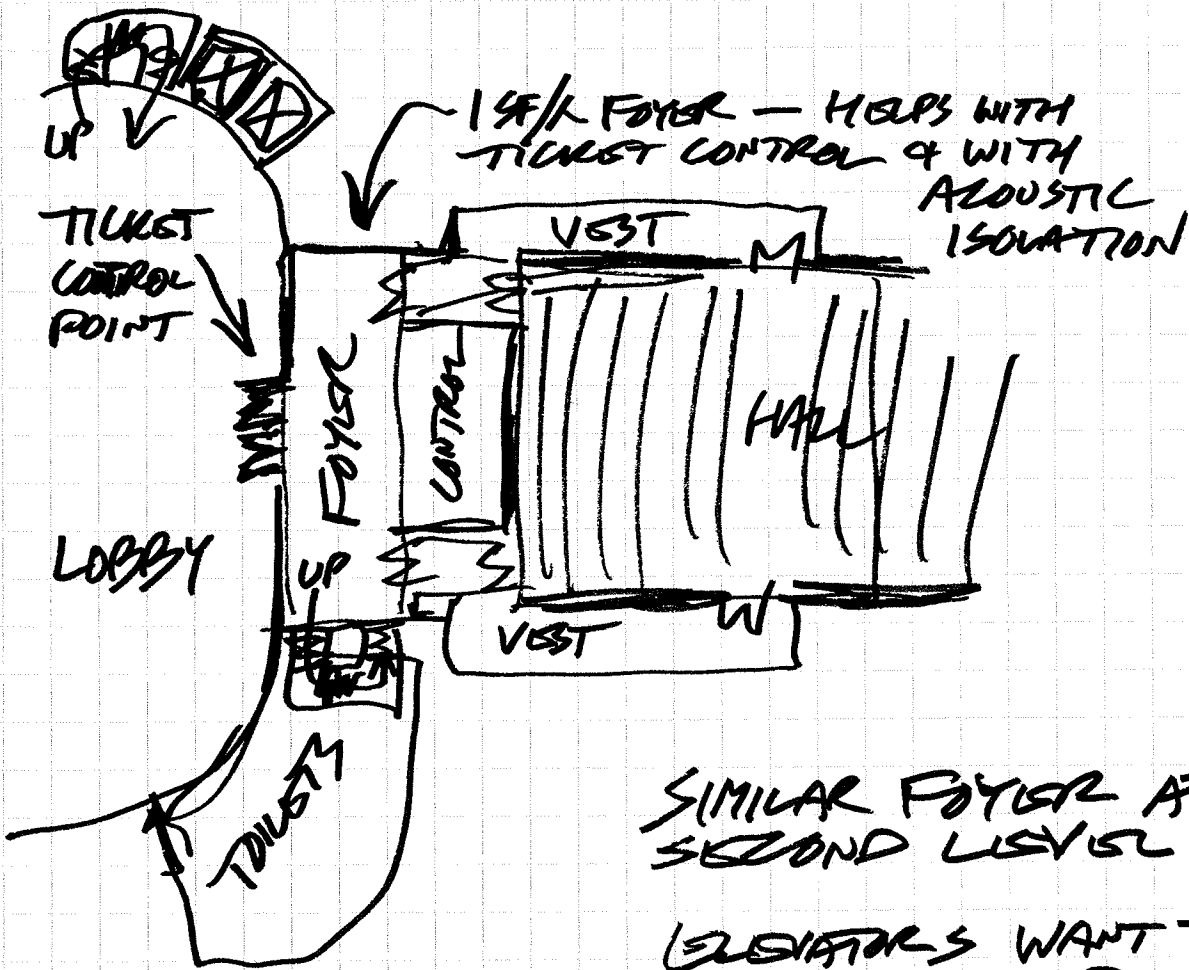 UP
1 SF/
FOYER — HELPS WITH
TICKET CONTROL & WITH
ACOUSTIC
ISOLATION
TICKET
CONTROL
POINT
VEST
FOYER
CONTROL
HALL
LOBBY
UP
VEST
TOILETS
SIMILAR FOYER
SECOND LEVEL
ELEVATORS WANT